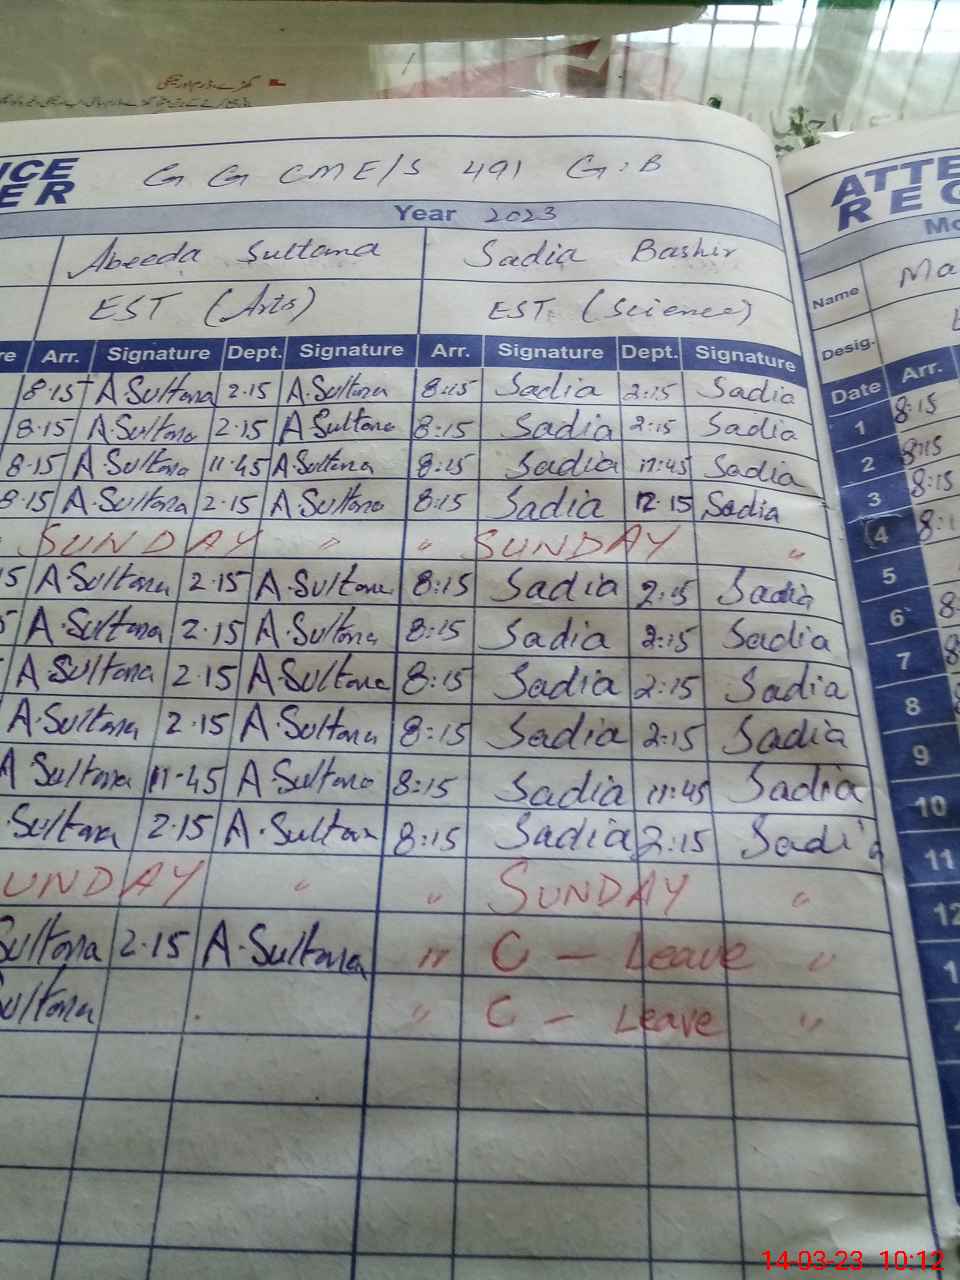 کھڑے، ڈرم اور ٹینکی
ICE
ER
G G CME/S 491 G:B
Year 2023
Abeeda Sultana Sadia Bashir
EST (Arts) EST (Science)
re Arr. Signature Dept. Signature Arr. Signature Dept. Signature
8·15 A Sultana 2.15 A.Sultana 8:15 Sadia 2:15 Sadia
8·15 A.Sultana 2·15 A Sultana 8:15 Sadia 2:15 Sadia
8·15 A.Sultana 11·45 A.Sultana 8:15 Sadia 11:45 Sadia
8·15 A.Sultana 2·15 A.Sultana 8:15 Sadia 12·15 Sadia
SUNDAY " " SUNDAY "
5 A.Sultana 2·15 A.Sultana 8:15 Sadia 2:15 Sadia
5 A.Sultana 2·15 A.Sultana 8:15 Sadia 2:15 Sadia
A.Sultana 2·15 A.Sultana 8:15 Sadia 2:15 Sadia
A.Sultana 2·15 A.Sultana 8:15 Sadia 2:15 Sadia
A Sultana 11·45 A Sultana 8:15 Sadia 11:45 Sadia
Sultana 2·15 A.Sultan 8:15 Sadia 2:15 Sadia
UNDAY " " SUNDAY "
Sultana 2·15 A.Sultana " C – Leave "
Sultana " C – Leave "
ATTE
REG
Mo
Name Ma
Desig.
Date Arr.
1 8:15
2 8:15
3 8:15
4 8:1
5
6 8:
7 8
8
9
10
11
12
1
14-03-23 10:12